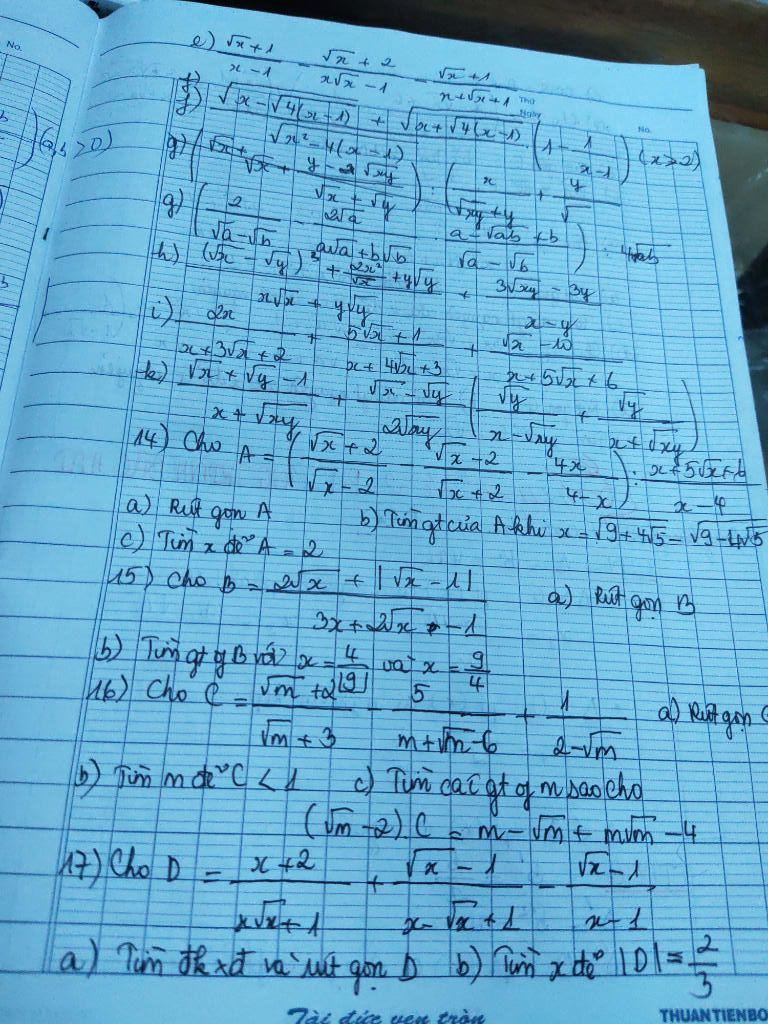 No.
e) (√x + 1)/(x − 1) − (√x + 2)/(x√x − 1) − (√x + 1)/(x + √x + 1)
Thứ
Ngày
No.
f) (√(x − √(4(x − 1))) + √(x + √(4(x − 1))))/√(x² − 4(x − 1)) · (1 − 1/(x − 1)) (x > 2)
g) (√x + (y − √xy)/(√x + √y)) : (x/(√xy + y) + y/√
g) (2/(√a − √b) − 2√a/(a√a + b√b) · (a − √ab + b)/(√a − √b)) : 4√ab
h) ((√x − √y)³ + 2x²/√x + y√y)/(x√x + y√y) + (3√xy − 3y)/(x − y)
i) 2x/(x + 3√x + 2) + (5√x + 1)/(x + 4√x + 3) + (√x − 10)/(x + 5√x + 6)
k) (√x + √y − 1)/(x + √xy) + (√x − √y)/(2√xy) (√y/(x − √xy) + √y/(x + √xy))
14) Cho A = ((√x + 2)/(√x − 2) − (√x − 2)/(√x + 2) − 4x/(4 − x)) : (x + 5√x + 6)/(x − 4)
a) Rút gọn A b) Tìm gt của A khi x = √(9 + 4√5) − √(9 − 4√5)
c) Tìm x để A = 2
15) Cho B = (2√x + |√x − 1|)/(3x + 2√x − 1) a) Rút gọn B
b) Tìm gt of B với x = 4/9 và x = 9/4
16) Cho C = (√m + 2)/(√m + 3) − 5/(m + √m − 6) + 1/(2 − √m) a) Rút gọn C
b) Tìm m để C < 1 c) Tìm các gt of m sao cho
(√m − 2) . C = m − √m + m√m − 4
17) Cho D = (x + 2)/(x√x + 1) + (√x − 1)/(x − √x + 1) − (√x − 1)/(x − 1)
a) Tìm đk xđ và rút gọn D b) Tìm x để |D| = 2/3
Tài đức vẹn tròn
THUANTIENBO